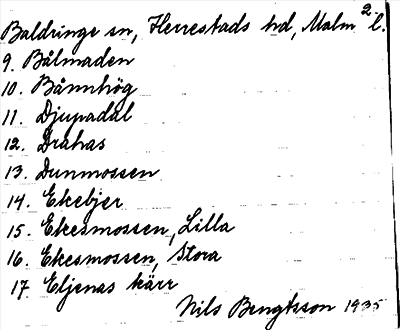 Baldringe sn, Herrestads hd, Malm 2 l.
9. Bålmaden
10. Bånnhög
11. Djupadal
12. Drahas
13. Dunmossen
14. Ekebjer
15. Ekesmossen, Lilla
16. Ekesmossen, Stora
17. Eljenas kärr
Nils Bengtsson 1935